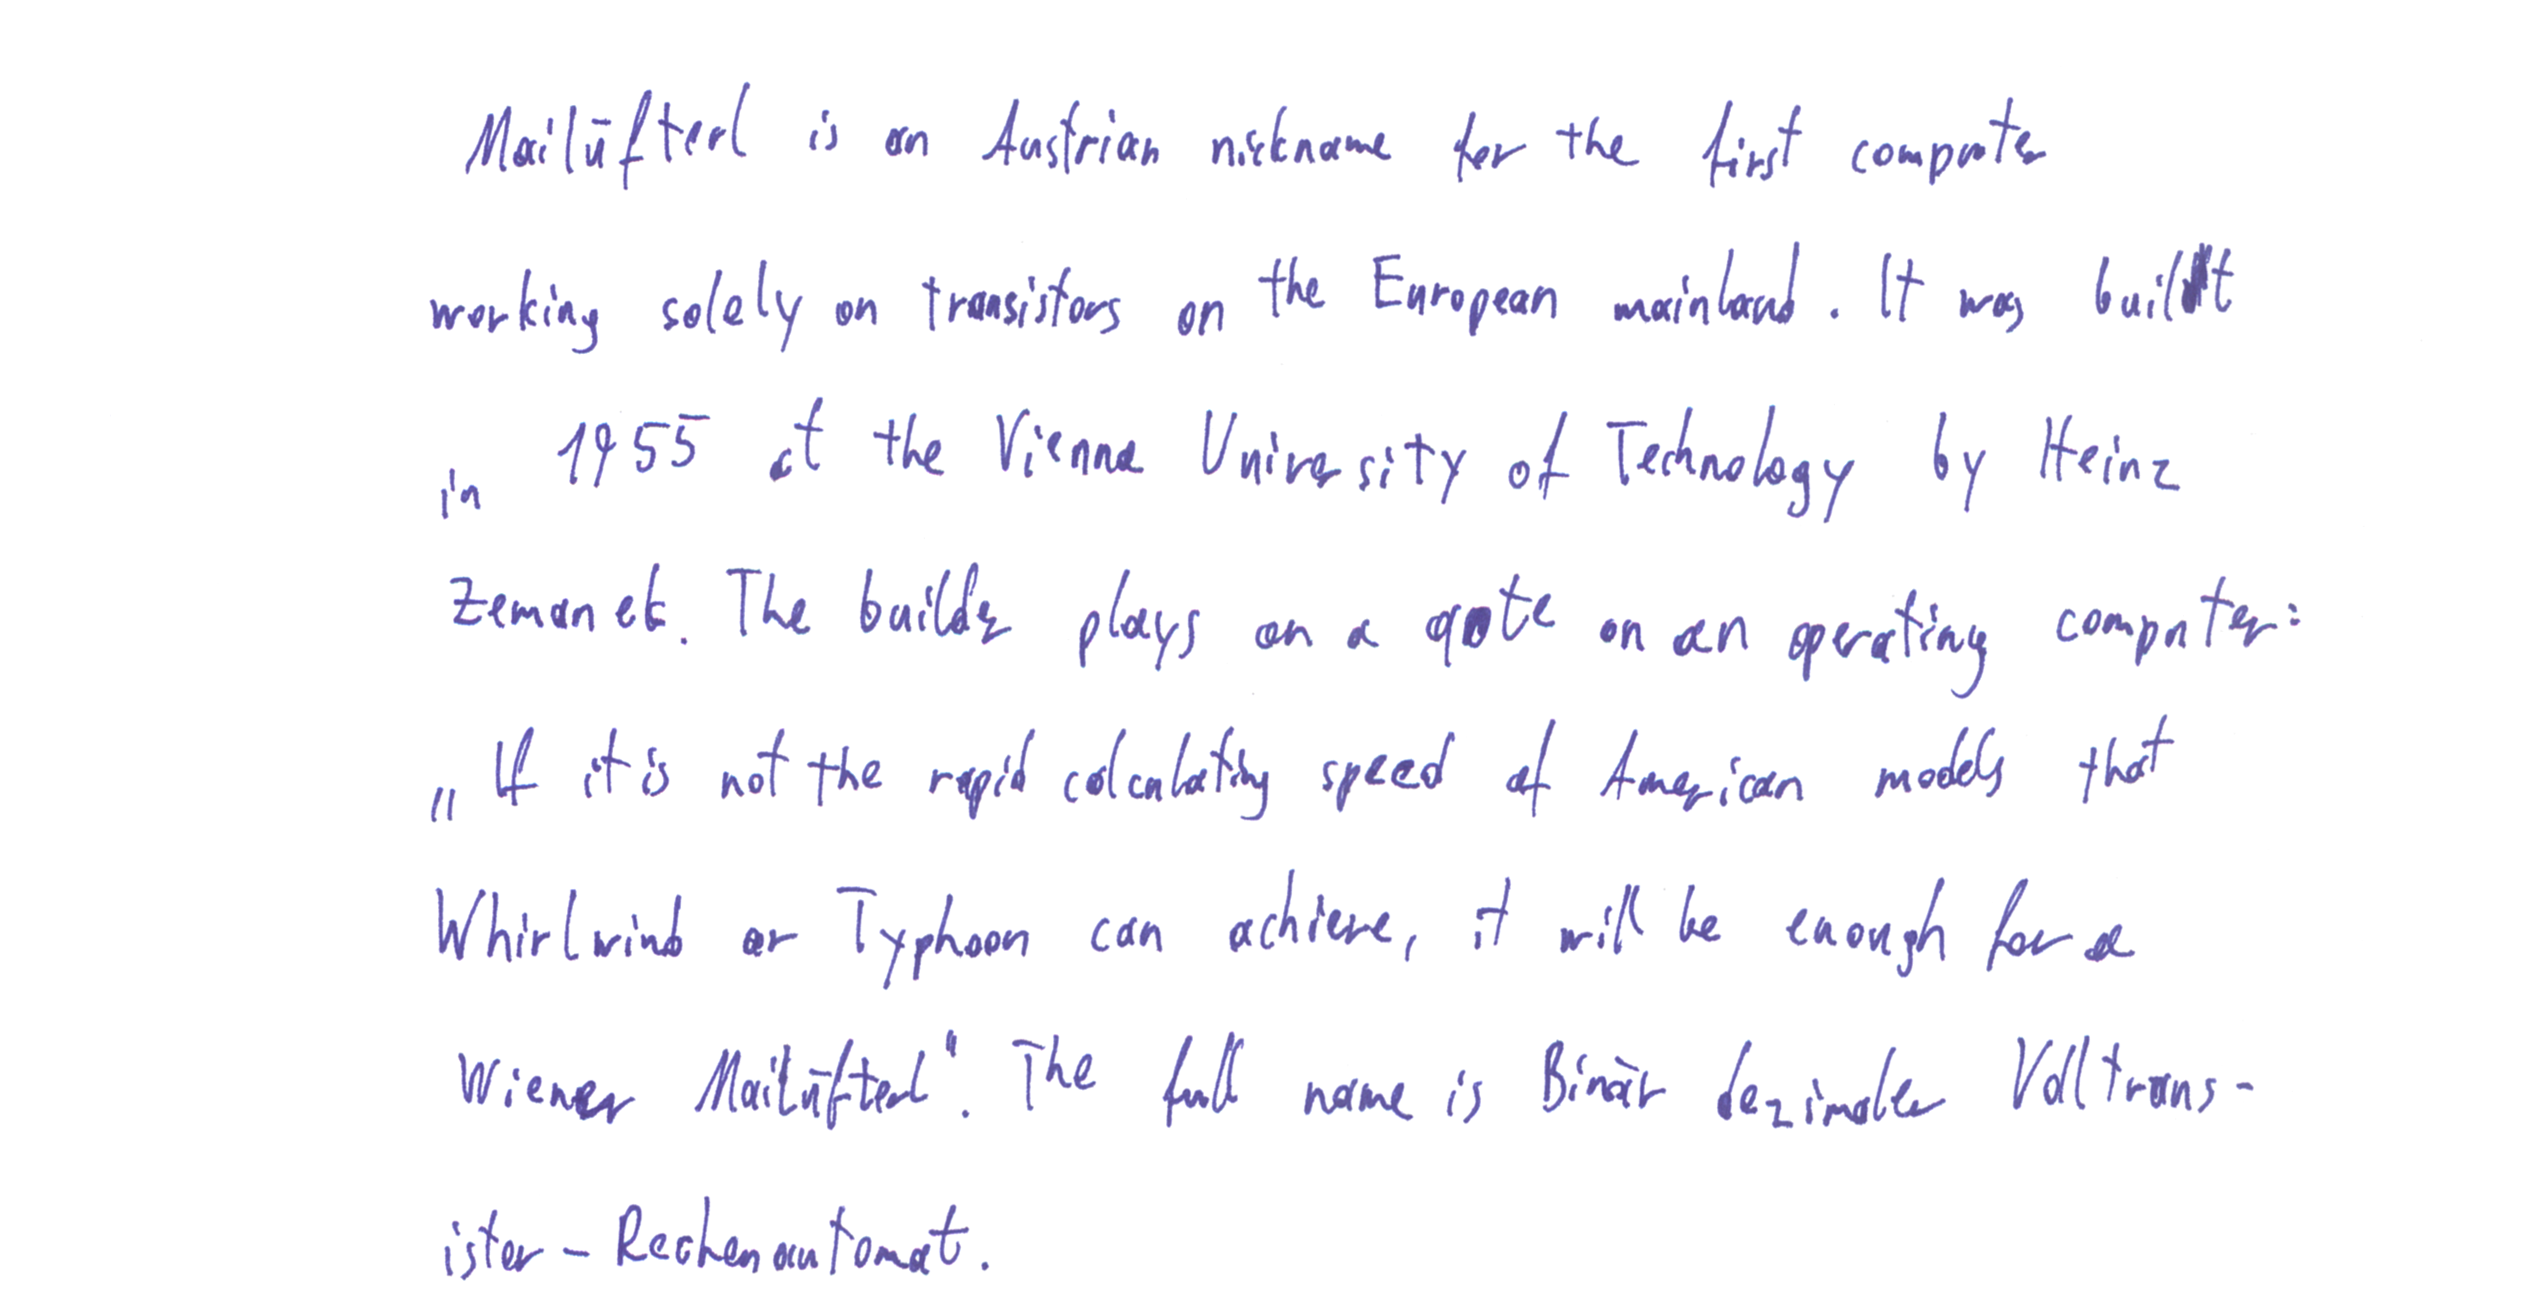 Mailüfterl is an Austrian nickname for the first computer
working solely on transistors on the European mainland. It was built
in 1955 at the Vienna University of Technology by Heinz
Zemanek. The builder plays on a qote on an operating computer:
„If it is not the rapid calculating speed of American models that
Whirlwind or Typhoon can achieve, it will be enough for a
Wiener Mailüfterl“. The full name is Binär dezimaler Volltrans-
ister-Rechenautomat.